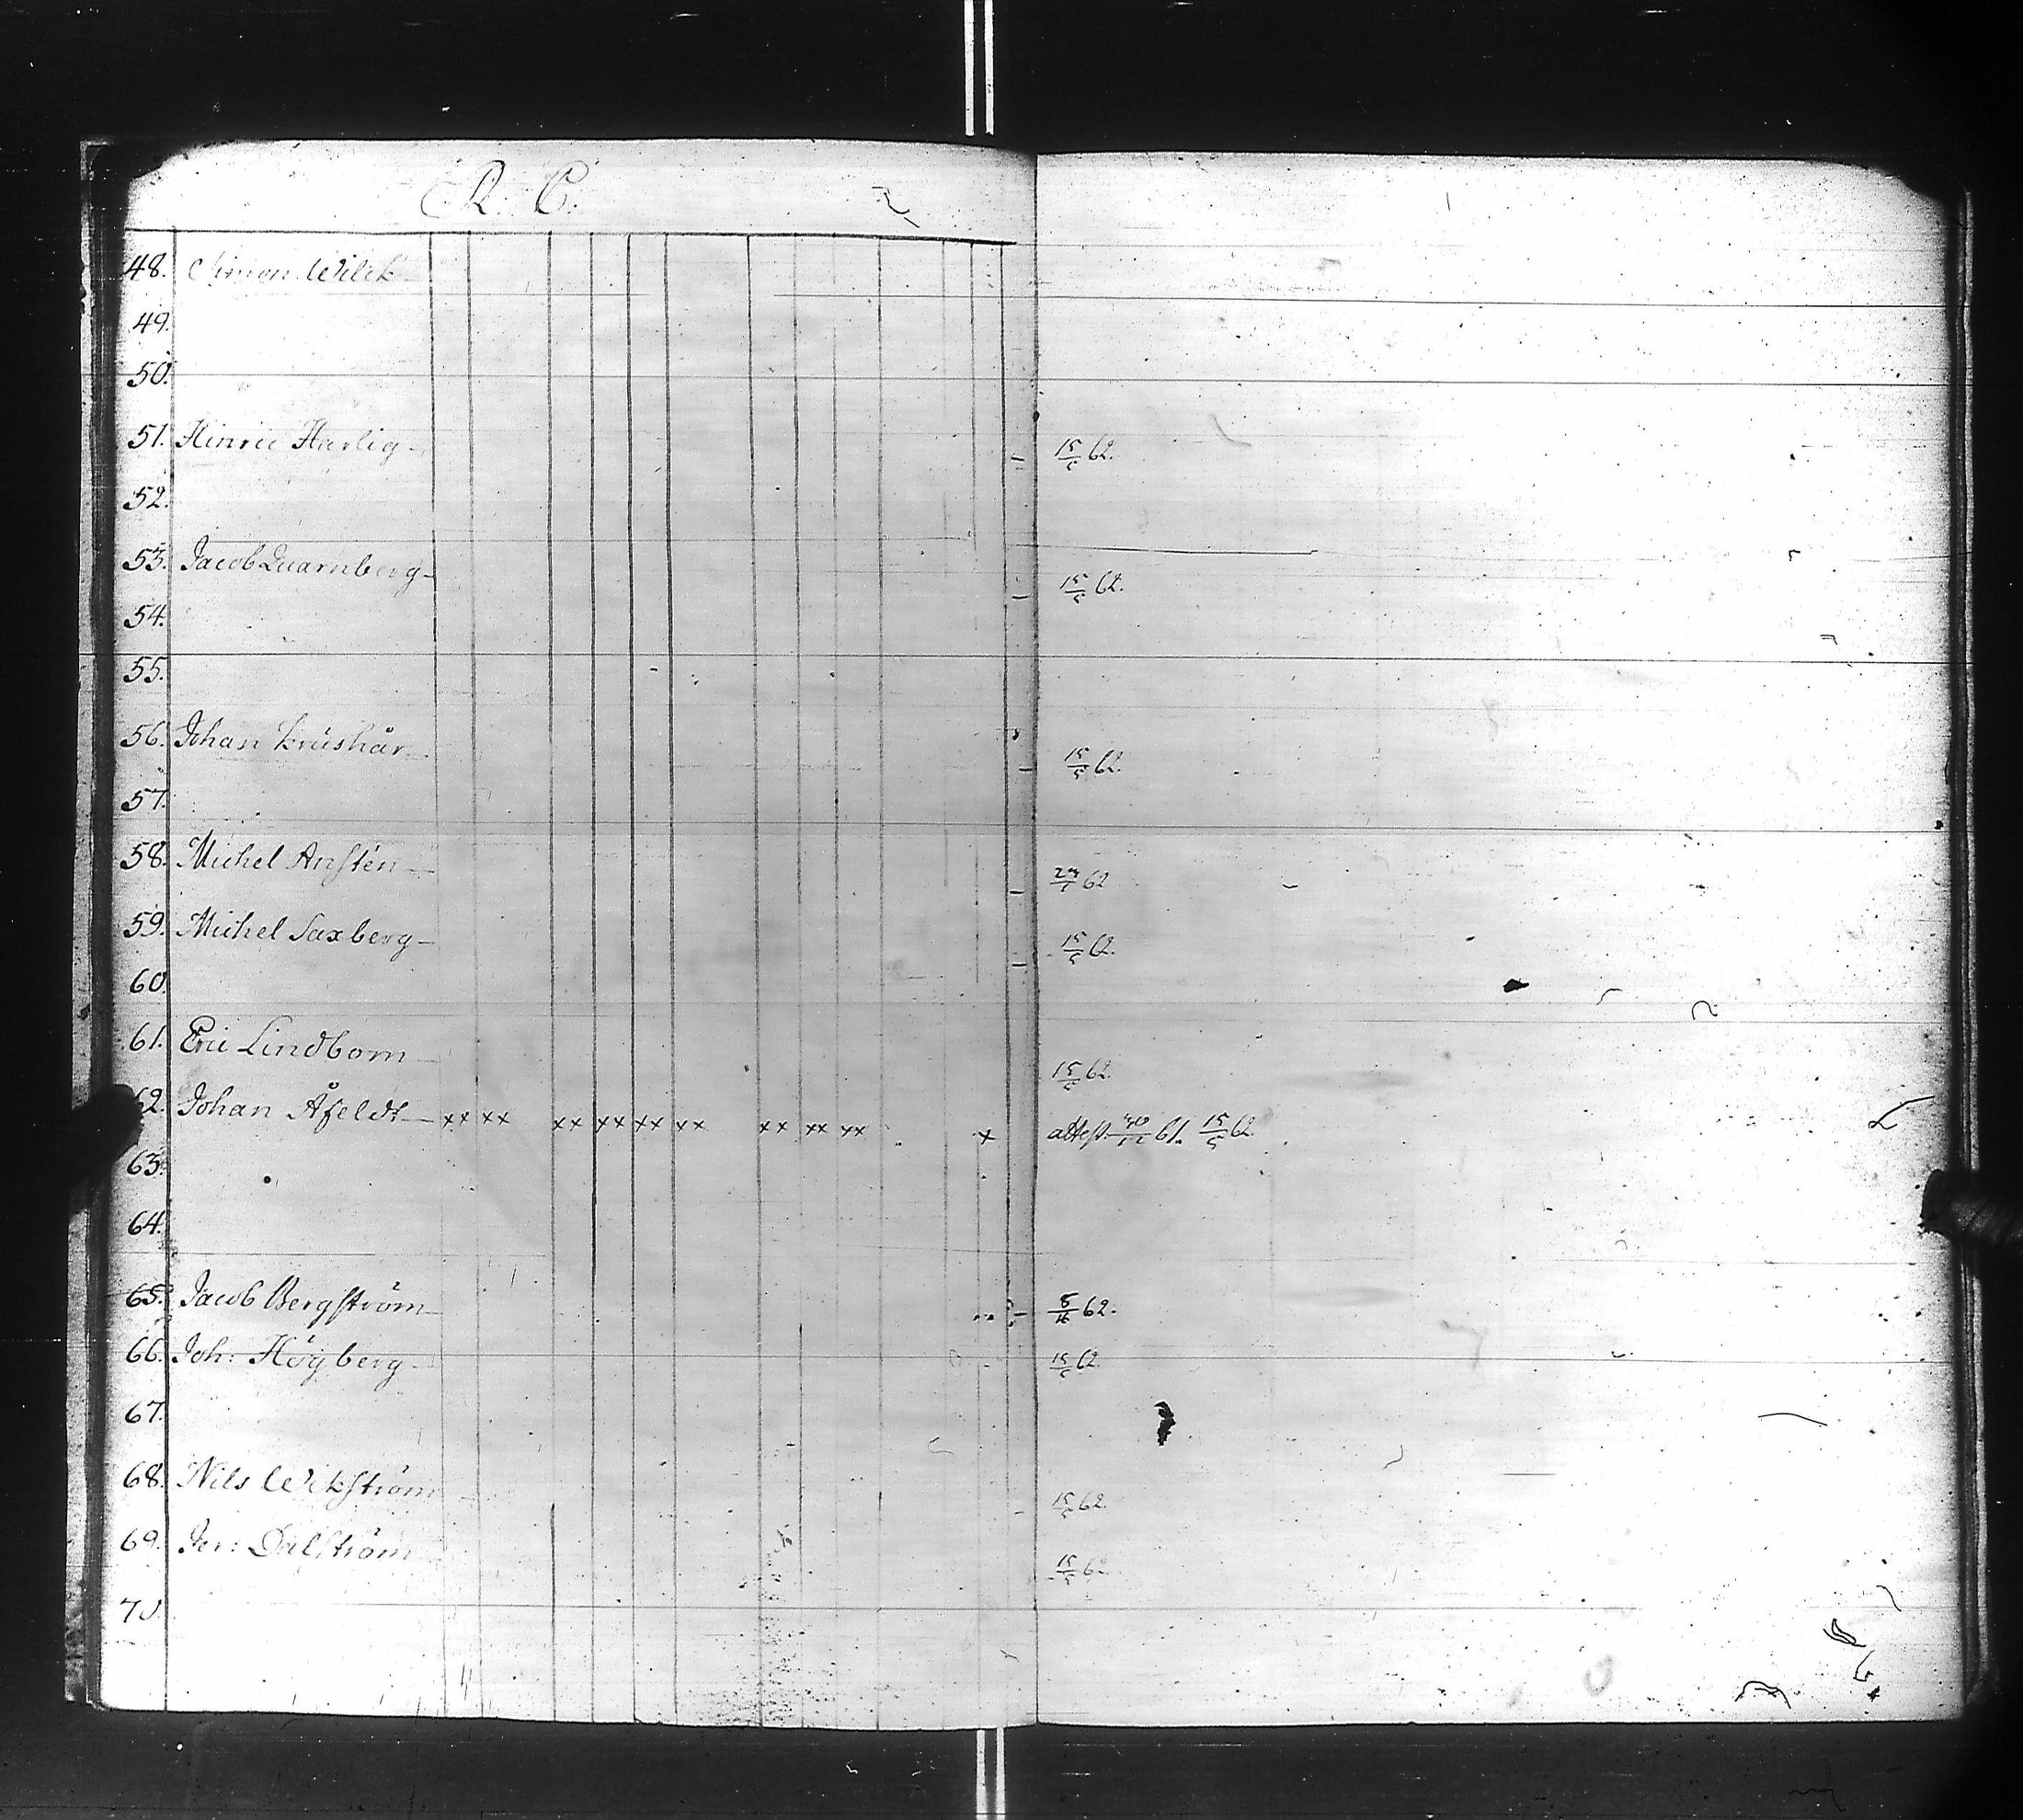 R. C.
48. Simon Wilck
49.
50.
51. Hinric Harlig - 15/5 62.
52.
53. Jacob Quarnberg - 15/5 62.
54.
55.
56. Johan Krüshår - 15/5 62.
57.
58. Michel Anstén - 62
59. Michel Saxberg - 15/5 62.
60.
61. Eric Lindbom - 15/5 62.
62. Johan Åfeldt - xx xx xx xx xx xx xx xx xx x attest. 61. 15/5 62.
63.
64.
65. Jacob Bergström - 62.
66. Joh: Högberg - 15/5 62.
67.
68. Nils Wikström 15/5 62.
69. Jer: Dalström 15/5 62
70.